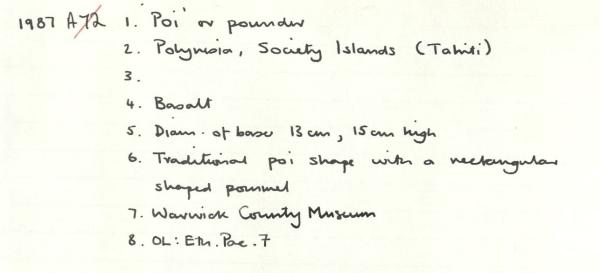 1987 A72 1. 'Poi' or pounder
2. Polynesia, Society Islands (Tahiti)
3.
4. Basalt
5. Diam. of base 13cm, 15cm high
6. Traditional poi shape with a rectangular
shaped pommel
7. Warwick County Museum
8. OL: Eth. Pac. 7